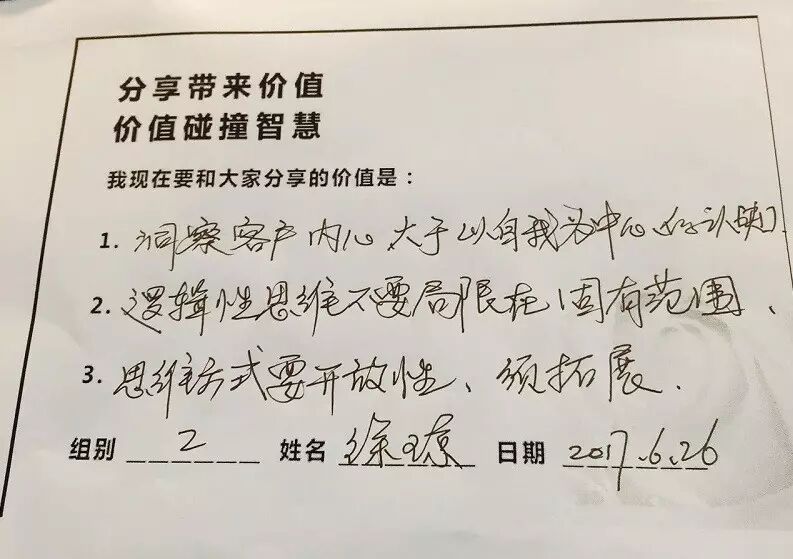 分享带来价值
价值碰撞智慧
我现在要和大家分享的价值是：
1. 洞察客户内心大于以自我为中心
2. 逻辑性思维不要局限在固有范围、
3. 思维方式要开放性、须拓展.
组别 2 姓名 徐琼 日期 2017.6.26